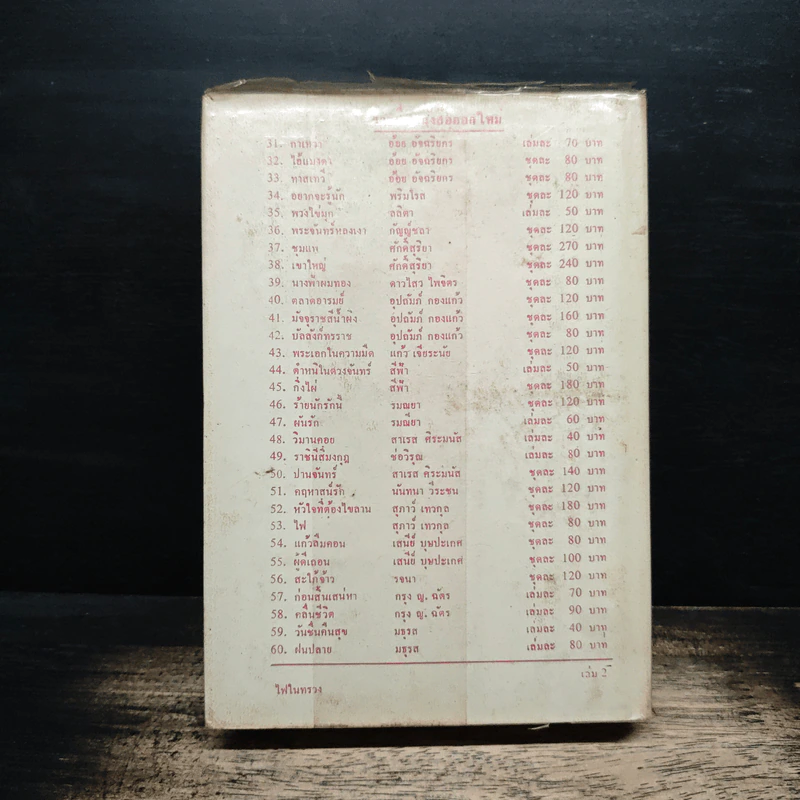 31. กาเหว่า อ้อย อัจฉริยกร เล่มละ 70 บาท
32. ไอ้แมวดำ อ้อย อัจฉริยกร ชุดละ 80 บาท
33. ทาสเทวี อ้อย อัจฉริยกร ชุดละ 80 บาท
34. อยากจะรู้นัก พริมโรส ชุดละ 120 บาท
35. พวงไข่มุก ลลิตา เล่มละ 50 บาท
36. พระจันทร์หลงเงา กัญญ์ชลา ชุดละ 120 บาท
37. ชุมแพ ศักดิ์สุริยา ชุดละ 270 บาท
38. เขาใหญ่ ศักดิ์สุริยา ชุดละ 240 บาท
39. นางฟ้าผมทอง ดาวไสว ไพจิตร ชุดละ 80 บาท
40. ตลาดอารมย์ อุปถัมภ์ กองแก้ว ชุดละ 120 บาท
41. มัจจุราชสีน้ำผึ้ง อุปถัมภ์ กองแก้ว ชุดละ 160 บาท
42. บัลลังก์ทรราช อุปถัมภ์ กองแก้ว ชุดละ 80 บาท
43. พระเอกในความมืด แก้ว เจียระนัย ชุดละ 120 บาท
44. ตำหนิในดวงจันทร์ สีฟ้า เล่มละ 50 บาท
45. กิ่งไผ่ สีฟ้า ชุดละ 180 บาท
46. ร้ายนักรักนี้ รมณียา ชุดละ 120 บาท
47. ฝันรัก รมณียา เล่มละ 60 บาท
48. วิมานคอย สาเรส ศิระมนัส เล่มละ 40 บาท
49. ราชินีสิ้มงกุฎ ช่อวิรุณ เล่มละ 80 บาท
50. ปานจันทร์ สาเรส ศิระมนัส ชุดละ 140 บาท
51. คฤหาสน์รัก นันทนา วีระชน ชุดละ 120 บาท
52. หัวใจที่ต้องไขลาน สุภาว์ เทวกุล ชุดละ 180 บาท
53. ไฟ สุภาว์ เทวกุล ชุดละ 80 บาท
54. แก้วลืมคอน เสนีย์ บุษปะเกศ ชุดละ 80 บาท
55. ผู้ดีเถื่อน เสนีย์ บุษปะเกศ ชุดละ 100 บาท
56. สะใภ้จ้าว รจนา ชุดละ 120 บาท
57. ก่อนสิ้นเสน่หา กรุง ญ. ฉัตร เล่มละ 70 บาท
58. คลื่นชีวิต กรุง ญ. ฉัตร เล่มละ 90 บาท
59. วันชื่นคืนสุข มธุรส เล่มละ 40 บาท
60. ฝนปลาย มธุรส เล่มละ 80 บาท
ไฟในทรวง เล่ม 2